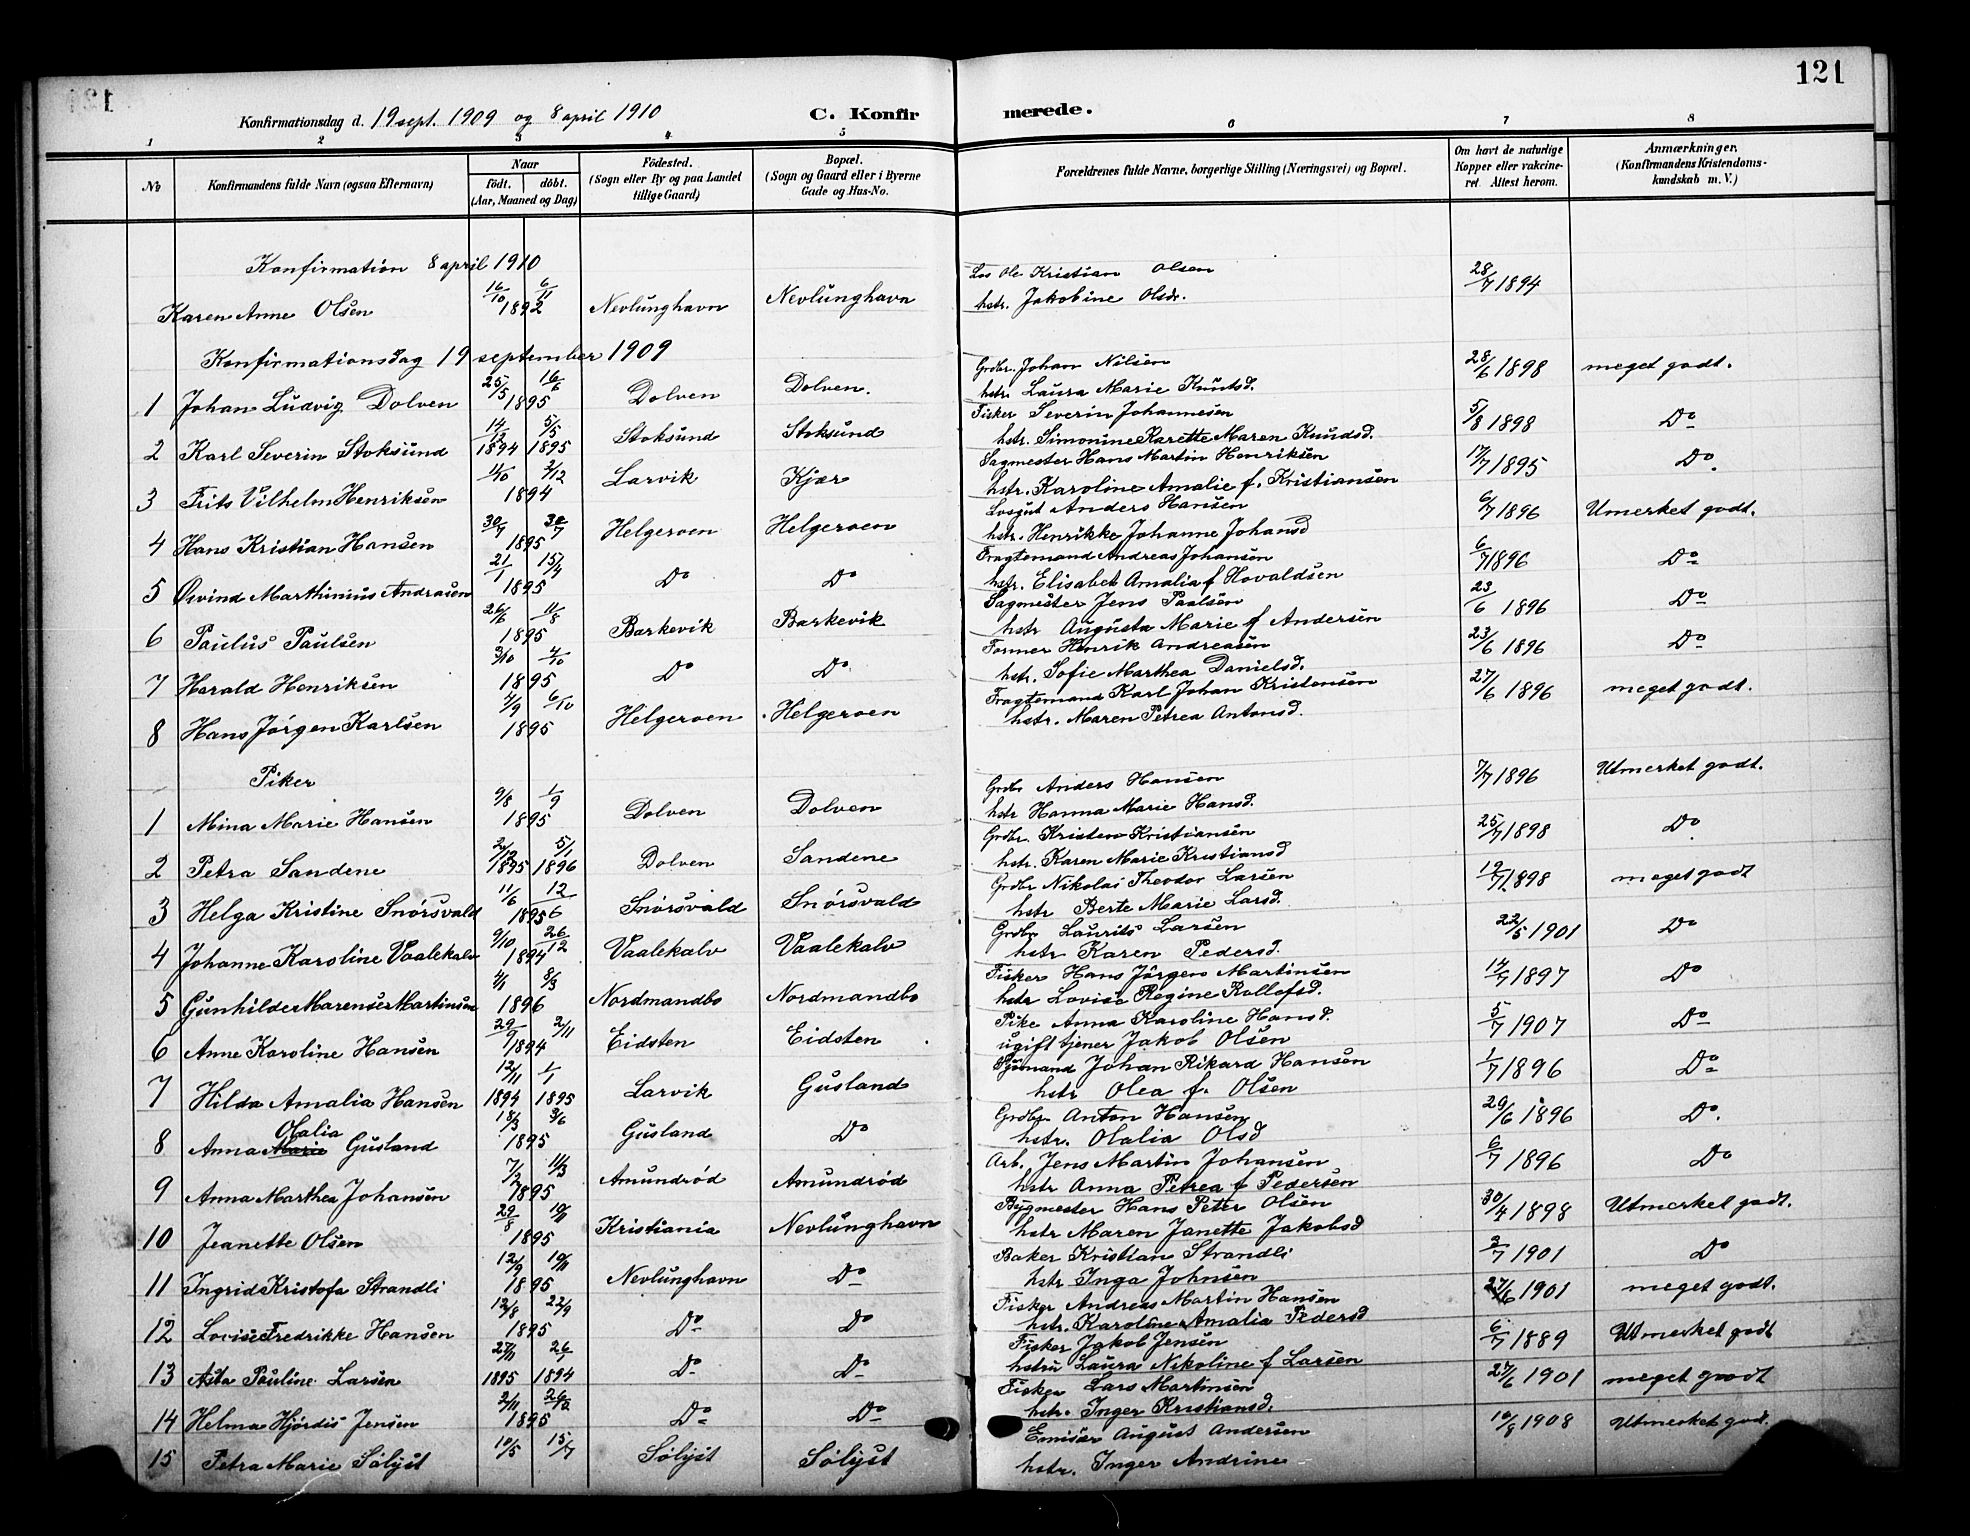 121
Konfirmationsdag d. 19 sept. 1909 og 8 april 1910 C. Konfirmerede.
1 2 3 4 5 6 7 8
No
Konfirmandens fulde Navn (ogsaa Efternavn)
Naar
født. døbt.
(Aar, Maaned og Dag)
Fødested.
(Sogn eller By og paa Landet
tillige Gaard)
Bopæl.
(Sogn og Gaard eller i Byerne
Gade og Hus-No.
Forældrenes fulde Navne, borgerlige Stilling (Næringsvei) og Bopæl.
Om havt de naturlige
Kopper eller vakcine-
ret. Attest herom.
Anmærkninger.
(Konfirmandens Kristendoms-
kundskab m. V.)
Konfirmation 8 april 1910
Karen Anne Olsen 16/10 6/11 1892 Nevlunghavn Nevlunghavn Los Ole Kristian Olsen 28/7 1894
hstr. Jakobine Olsdr.
Konfirmationsdag 19 september 1909
1 Johan Ludvig Dolven 25/5 16/6 1895 Dolven Dolven. Grdbr. Johan Nilsen 28/6 1898 meget godt.
hstr. Laura Marie Knutsd.
2 Karl Severin Stoksund 14/12 1894 5/5 1895 Stoksund Stoksund Fisker Severin Johannesen 5/8 1898 Do
hstr. Simonine Karette Maren Knudsd.
3 Frits Vilhelm Henriksen 11/10 2/12 1894 Larvik Kjær Sagmester Hans Martin Henriksen 17/7 1895 Do.
hstr. Karoline Amalie f. Kristiansen
4 Hans Kristian Hansen 30/4 30/7 1895 Helgeroen Helgeroen Losgut Anders Hansen 6/7 1896 Utmerket godt.
hstr. Henrikke Johanne Johansd
5 Øivind Marthinius Andrasen 21/1 15/4 1895 Do Do Fragtemand Andreas Johansen 6/7 1896 Do
hstr. Elisabet Amalia f Hovaldsen
6 Paulus Paulsen 26/6 11/8 1895 Barkevik Barkevik Sagmester Jens Paulsen 23/6 1896 Do
hstr Augusta Marie f Andersen
7 Harald Henriksen 3/10 4/10 1895 Do Do Former Henrik Andreasen 23/6 1896 Do
hstr. Sofie Marthea Danielsd.
8 Hans Jörgen Karlsen 4/9 6/10 1895 Helgeroen Helgeroen Fragtemand Karl Johan Kristensen 27/6 1896 meget godt.
hstr. Maren Petrea Antonsd.
Piker
1 Mina Marie Hansen 9/8 1/9 1895 Dolven Dolven Grdbr Anders Hansen 7/7 1896 Utmerket godt.
hstr Hanna Marie Hansd.
2 Petra Sandene 2/12 1895 5/1 1896 Dolven Sandene Grdbr. Kristen Kristiansen 25/7 1898 Do
hstr. Karen Marie Kristiansd
3 Helga Kristine Snörsvald 11/6 12/6 1895 Snörsvald Snörsvald Grdbr Nikolai Theodor Larsen 19/7 1898 meget godt
hstr Berte Marie Larsd.
4 Johanne Karoline Vaalekalv 9/10 26/12 1894 Vaalekalv Vaalekalv Grdbr Laurits Larsen 22/5 1901 Do
hstr Karen Pedersd.
5 Gunhilde Marense Martinsen 4/1 8/3 1896 Nordmandbo Nordmandbo Fisker Hans Jörgen Martinsen 14/7 1897 Do
hstr Lovise Regine Rollofsd.
6 Anne Karoline Hansen 29/9 2/11 1894 Eidsten Eidsten Pike Anna Karoline Hansd. 5/7 1907 Do
ugift tjener Jakob Olsen
7 Hilda Amalia Hansen 12/11 1894 1/1 1895 Larvik Gusland Sjömand Johan Rikard Hansen 1/7 1896 Do
hstr Olea f. Olsen
8 Anna Marie Olalia Gusland 18/3 3/6 1895 Gusland Do Grdbr Anton Hansen 29/6 1896 Do.
hstr. Olalia Olsd
9 Anna Marthea Johansen 7/2 11/3 1895 Amundröd Amundröd Arb. Jens Martin Johansen 6/7 1896 Do
hstr Anna Petrea f Pedersen
10 Jeanette Olsen 29/8 10/11 1895 Kristiania Nevlunghavn Bygmester Hans Peter Olsen 30/4 1898 Utmerket godt.
hstr Maren Janette Jakobsd
11 Ingrid Kristofa Strandli 12/9 10/11 1895 Nevlunghavn Do Baker Kristian Strandli 3/7 1901 Do
hstr. Inga Johnsen
12 Lovise Fredrikke Hansen 12/8 22/9 1895 Do Do Fisker Andreas Martin Hansen 27/6 1901 meget godt.
hstr. Karoline Amalia Pedersd
13 Asta Pauline Larsen 27/11 1895 26/1 1894 Do Do Fisker Jakob Jensen 6/7 1889 Utmerket godt
hstru Laura Nikoline f Larsen
14 Helma Hjördis Jensen 2/11 26/12 1895 Do Do Fisker Lars Martinsen 27/6 1901 meget godt
hstr. Inger Kristiansd.
15 Petra Marie Sölyst 10/5 15/7 Sölyst Sölyst Emisær August Andersen 10/8 1908 Utmerket godt.
hstr. Inger Andrine